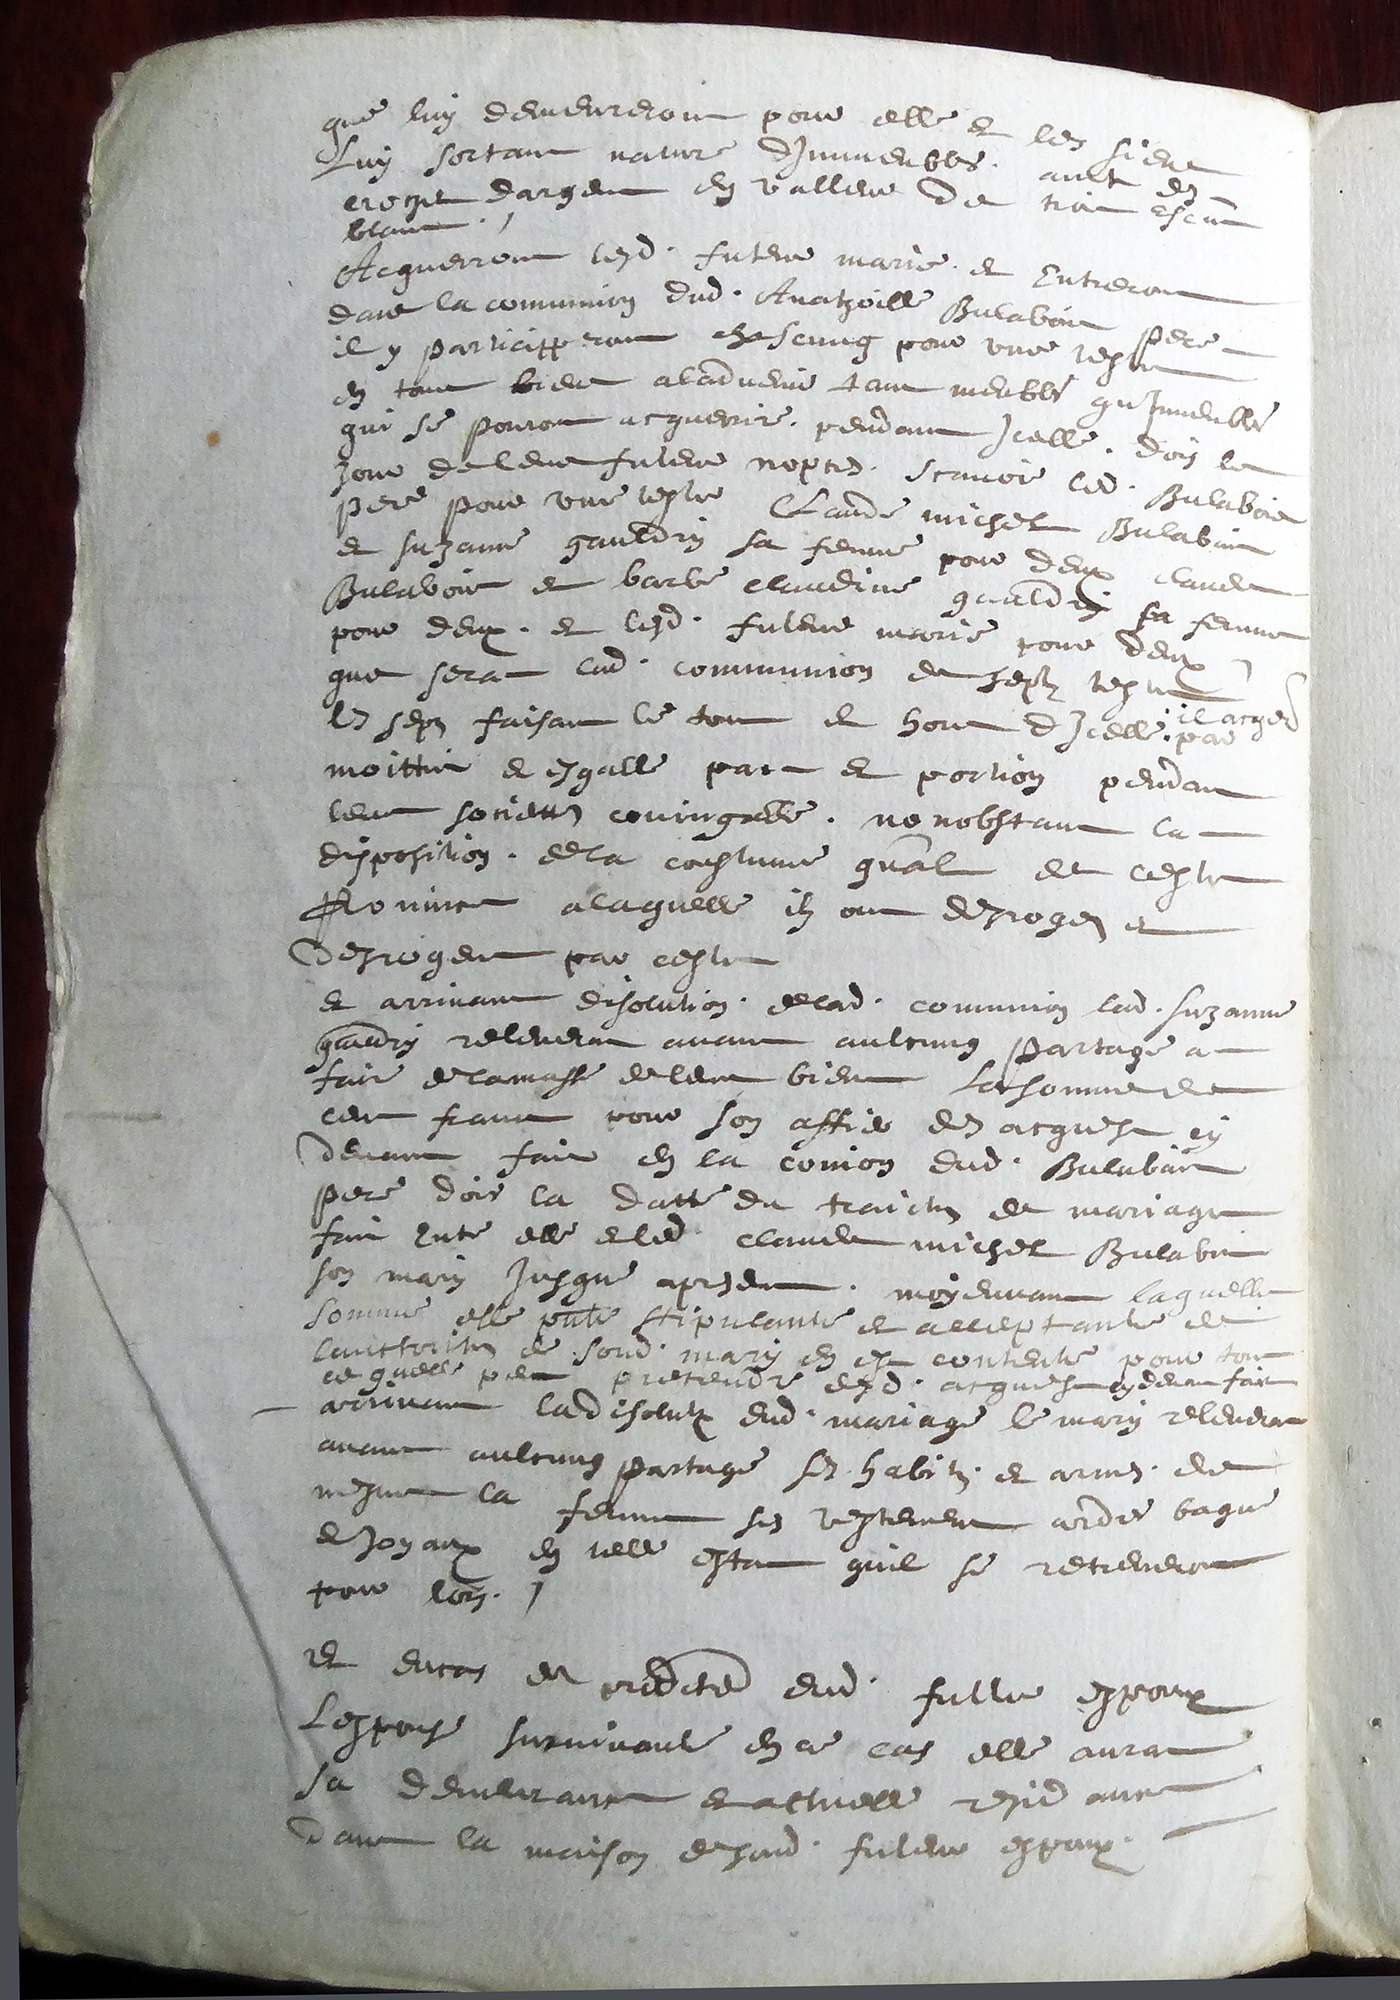 que luy demeureront pour elle et les siens
Luy sortans nature d'Immeubles. avec des
croze dargent en valleur de trois escus
blanc.
Acquerront lesd. futurs mariés et Entreront
dans la communion dud. Anathoille Bulaboin pere
il y participperont chescung pour une teste
en tous biens aladvenir tant meubles qu'Immeubles
qui se pouront acquerire pendant Icelle. dois le
jour de leurs futures noptes. scavoir led. Bulaboin
pere pour une teste Claude michel Bulaboin
et suzanne gauldry sa femme pour deux claude
Bulaboin et barbe claudine gauldry sa femme
pour deux. et lesd. futurs mariés pour deux
que sera lad. communion de sept testes
les sept faisant le tout et hors d'Icelle. il acqer
par
moittie et esgalle part et portion pendant
leurs societté coningalle. nonobstant la
disposition. de la coustume gnâl de ceste
Province a laquelle ilz ont desrogés et
Desrogent par ceste
et arrivant disolution. de lad. communion lad. suzanne
gauldry relevera avant aulcung partage a
faire de la masse de leurs biens La somme de
cent frans pour son affier des acquest cy
Devant fait en la comion dud. Bulaboin
pere dois la datte du traictés de mariage
fait Entre elle et led. claude michel Bulaboin
son mary Jusque apresent. moyennant laquelle
somme elle pnte stipulante et acceptante de
lauctorites de sond. mary en est contente pour tout
ce quelle peut pretendre esd. acquest cy devant fait
arrivant la disolutx dud. mariage le mary relevera
avant aulcung partage ses habitz et armes. de
mesme la femme ses vestement ardes bague
et Joyaux en telle estat quil se retreuveront
pour lors.
Et en cas de predeces dud. futur espoux
Lespouse survivante en ce cas elle aura
sa demeurance et actuelle residance
Dans la maison de sond. futur espoux.